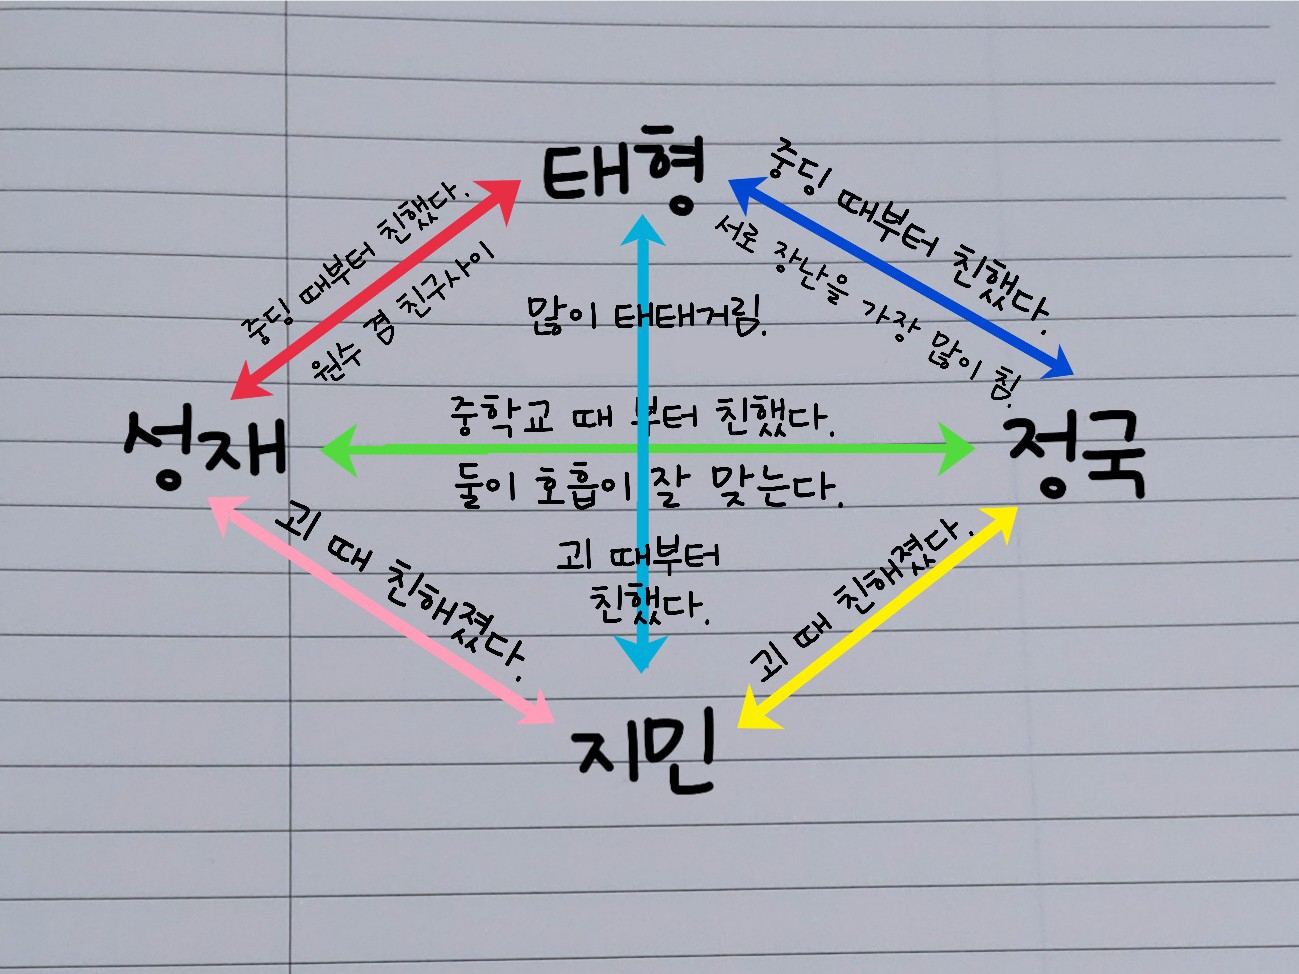 태형
중딩 때부터 친했다.
원수 겸 친구사이
중딩 때부터 친했다.
서로 장난을 가장 많이 침.
많이 태태거림.
성재
중학교 때 부터 친했다.
둘이 호흡이 잘 맞는다.
정국
괴 때 친해졌다.
괴 때부터
친했다.
괴 때 친해졌다.
지민